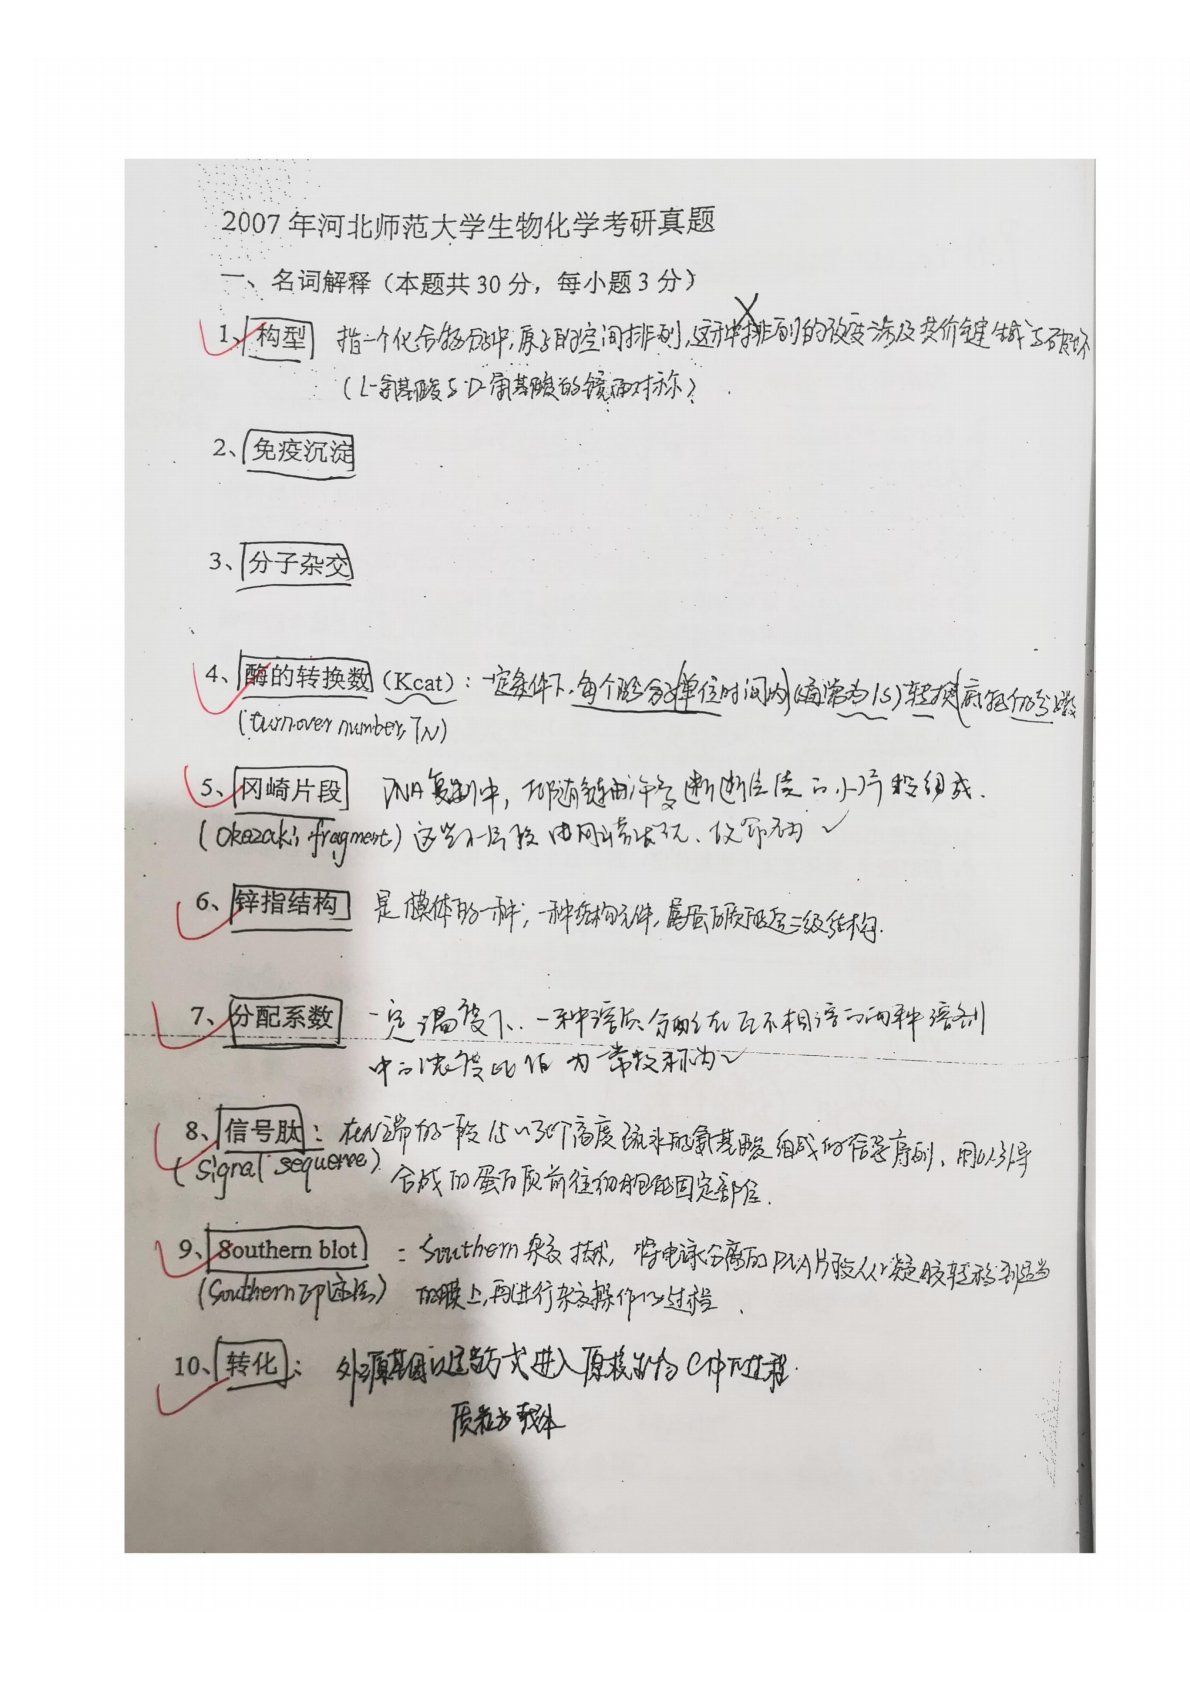 2007年河北师范大学生物化学考研真题
一、名词解释（本题共30分，每小题3分）
1、构型 指一个化合物分子中，原子的空间排列，这种排列的改变涉及共价键生成与破坏
（L-氨基酸与D-氨基酸的镜面对称）
2、免疫沉淀
3、分子杂交
4、酶的转换数（Kcat）：一定条件下，每个酶分子单位时间内（通常为1S）转换底物分子数
（turnover number, TN）
5、冈崎片段 DNA复制中，随链由许多断断连续的小片段组成，
（Okazaki fragment）这些小片段由冈崎发现、故命名为
6、锌指结构 是模体的一种，一种结构元件，属蛋白质超二级结构.
7、分配系数 一定温度下、一种溶质分配在互不相溶的两种溶剂
中的浓度比值为一常数称为
8、信号肽：在N端的一段15～30个高度疏水的氨基酸组成的信号序列，用以引导
（signal sequence）合成的蛋白质前往细胞的固定部位.
9、Southern blot ：Southern杂交技术，将电泳分离的DNA片段从凝胶转移到适当
（Southern印迹法）的膜上，再进行杂交操作的过程.
10、转化：外源基因以适当方式进入原核生物C中的过程.
质粒为载体